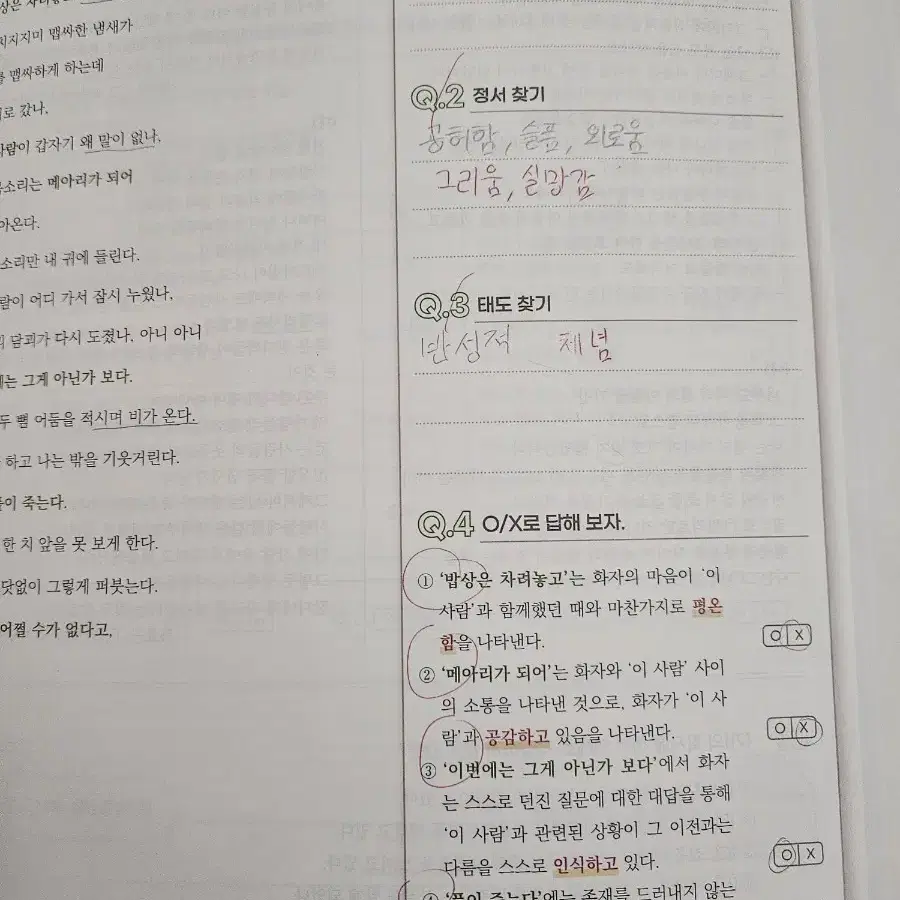 지지미 맵싸한 냄새가
맵싸하게 하는데
갔나,
사람이 갑자기 왜 말이 없나,
목소리는 메아리가 되어
아온다.
소리만 내 귀에 들린다.
람이 어디 가서 잠시 누웠나,
담괴가 다시 도졌나, 아니 아니
에는 그게 아닌가 보다.
두 뼘 어둠을 적시며 비가 온다.
하고 나는 밖을 기웃거린다.
들이 죽는다.
한 치 앞을 못 보게 한다.
닷없이 그렇게 퍼붓는다.
어쩔 수가 없다고,
Q.2 정서 찾기
공허함, 슬픔, 외로움
그리움, 실망감
Q.3 태도 찾기
반성적 체념
Q.4 O/X로 답해 보자.
① ‘밥상은 차려놓고’는 화자의 마음이 ‘이
사람’과 함께했던 때와 마찬가지로 평온
함을 나타낸다. O X
② ‘메아리가 되어’는 화자와 ‘이 사람’ 사이
의 소통을 나타낸 것으로, 화자가 ‘이 사
람’과 공감하고 있음을 나타낸다. O X
③ ‘이번에는 그게 아닌가 보다’에서 화자
는 스스로 던진 질문에 대한 대답을 통해
‘이 사람’과 관련된 상황이 그 이전과는
다름을 스스로 인식하고 있다. O X
④ ‘풀이 죽는다’에는 존재를 드러내지 않는